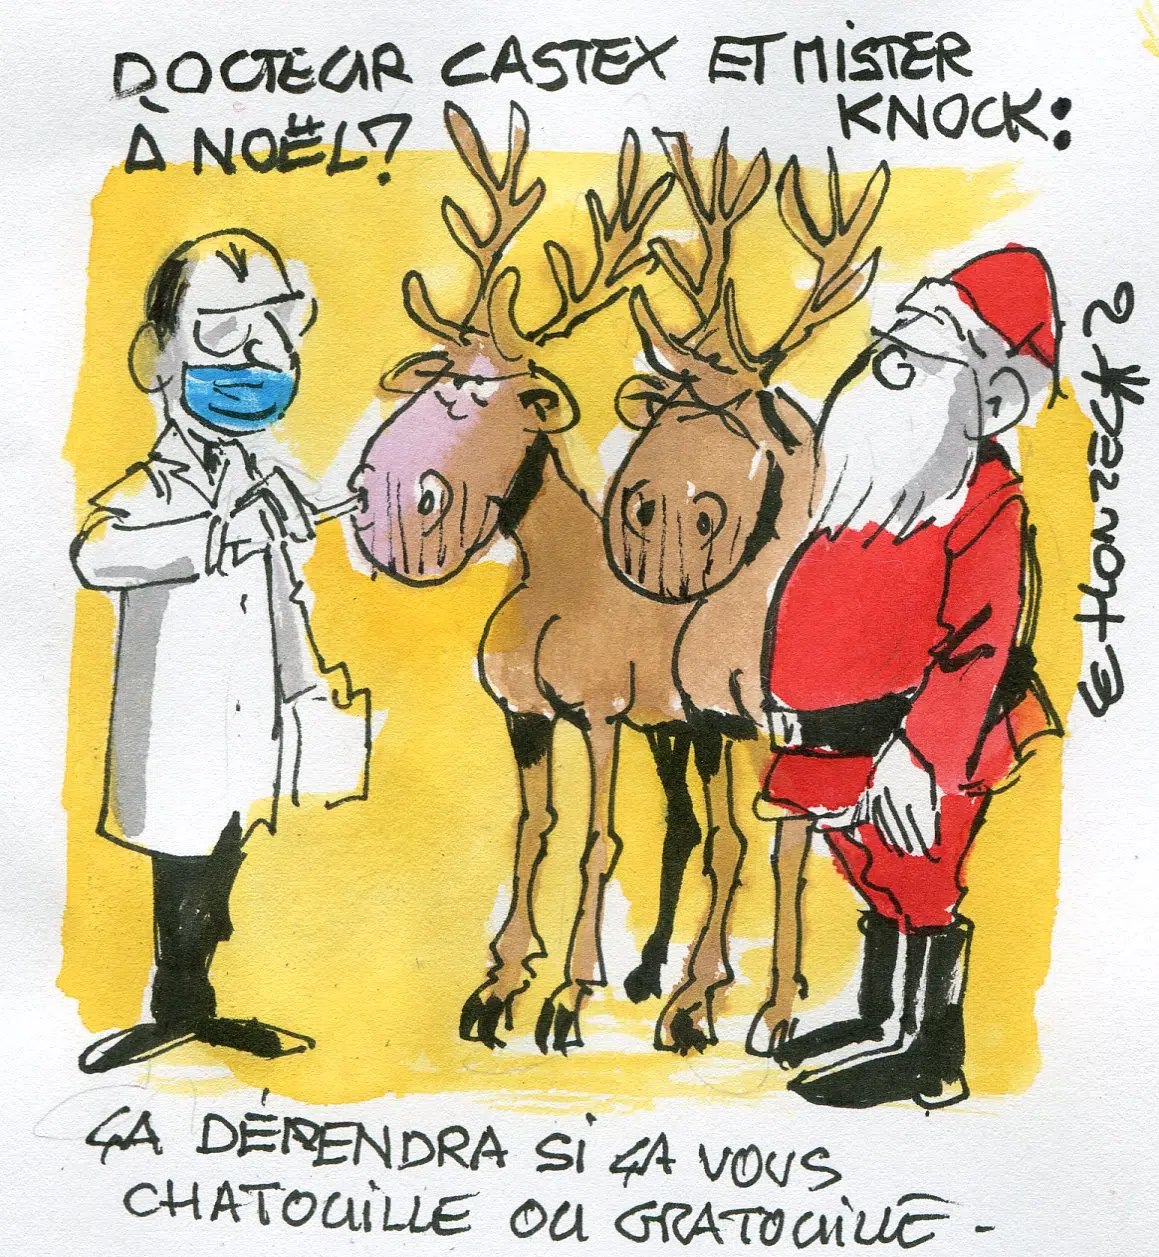 DOCTEUR CASTEX ET MISTER
KNOCK:
À NOËL?
ÇA DÉPENDRA SI ÇA VOUS
CHATOUILLE OU GRATOUILLE-
LE HONZEC 20